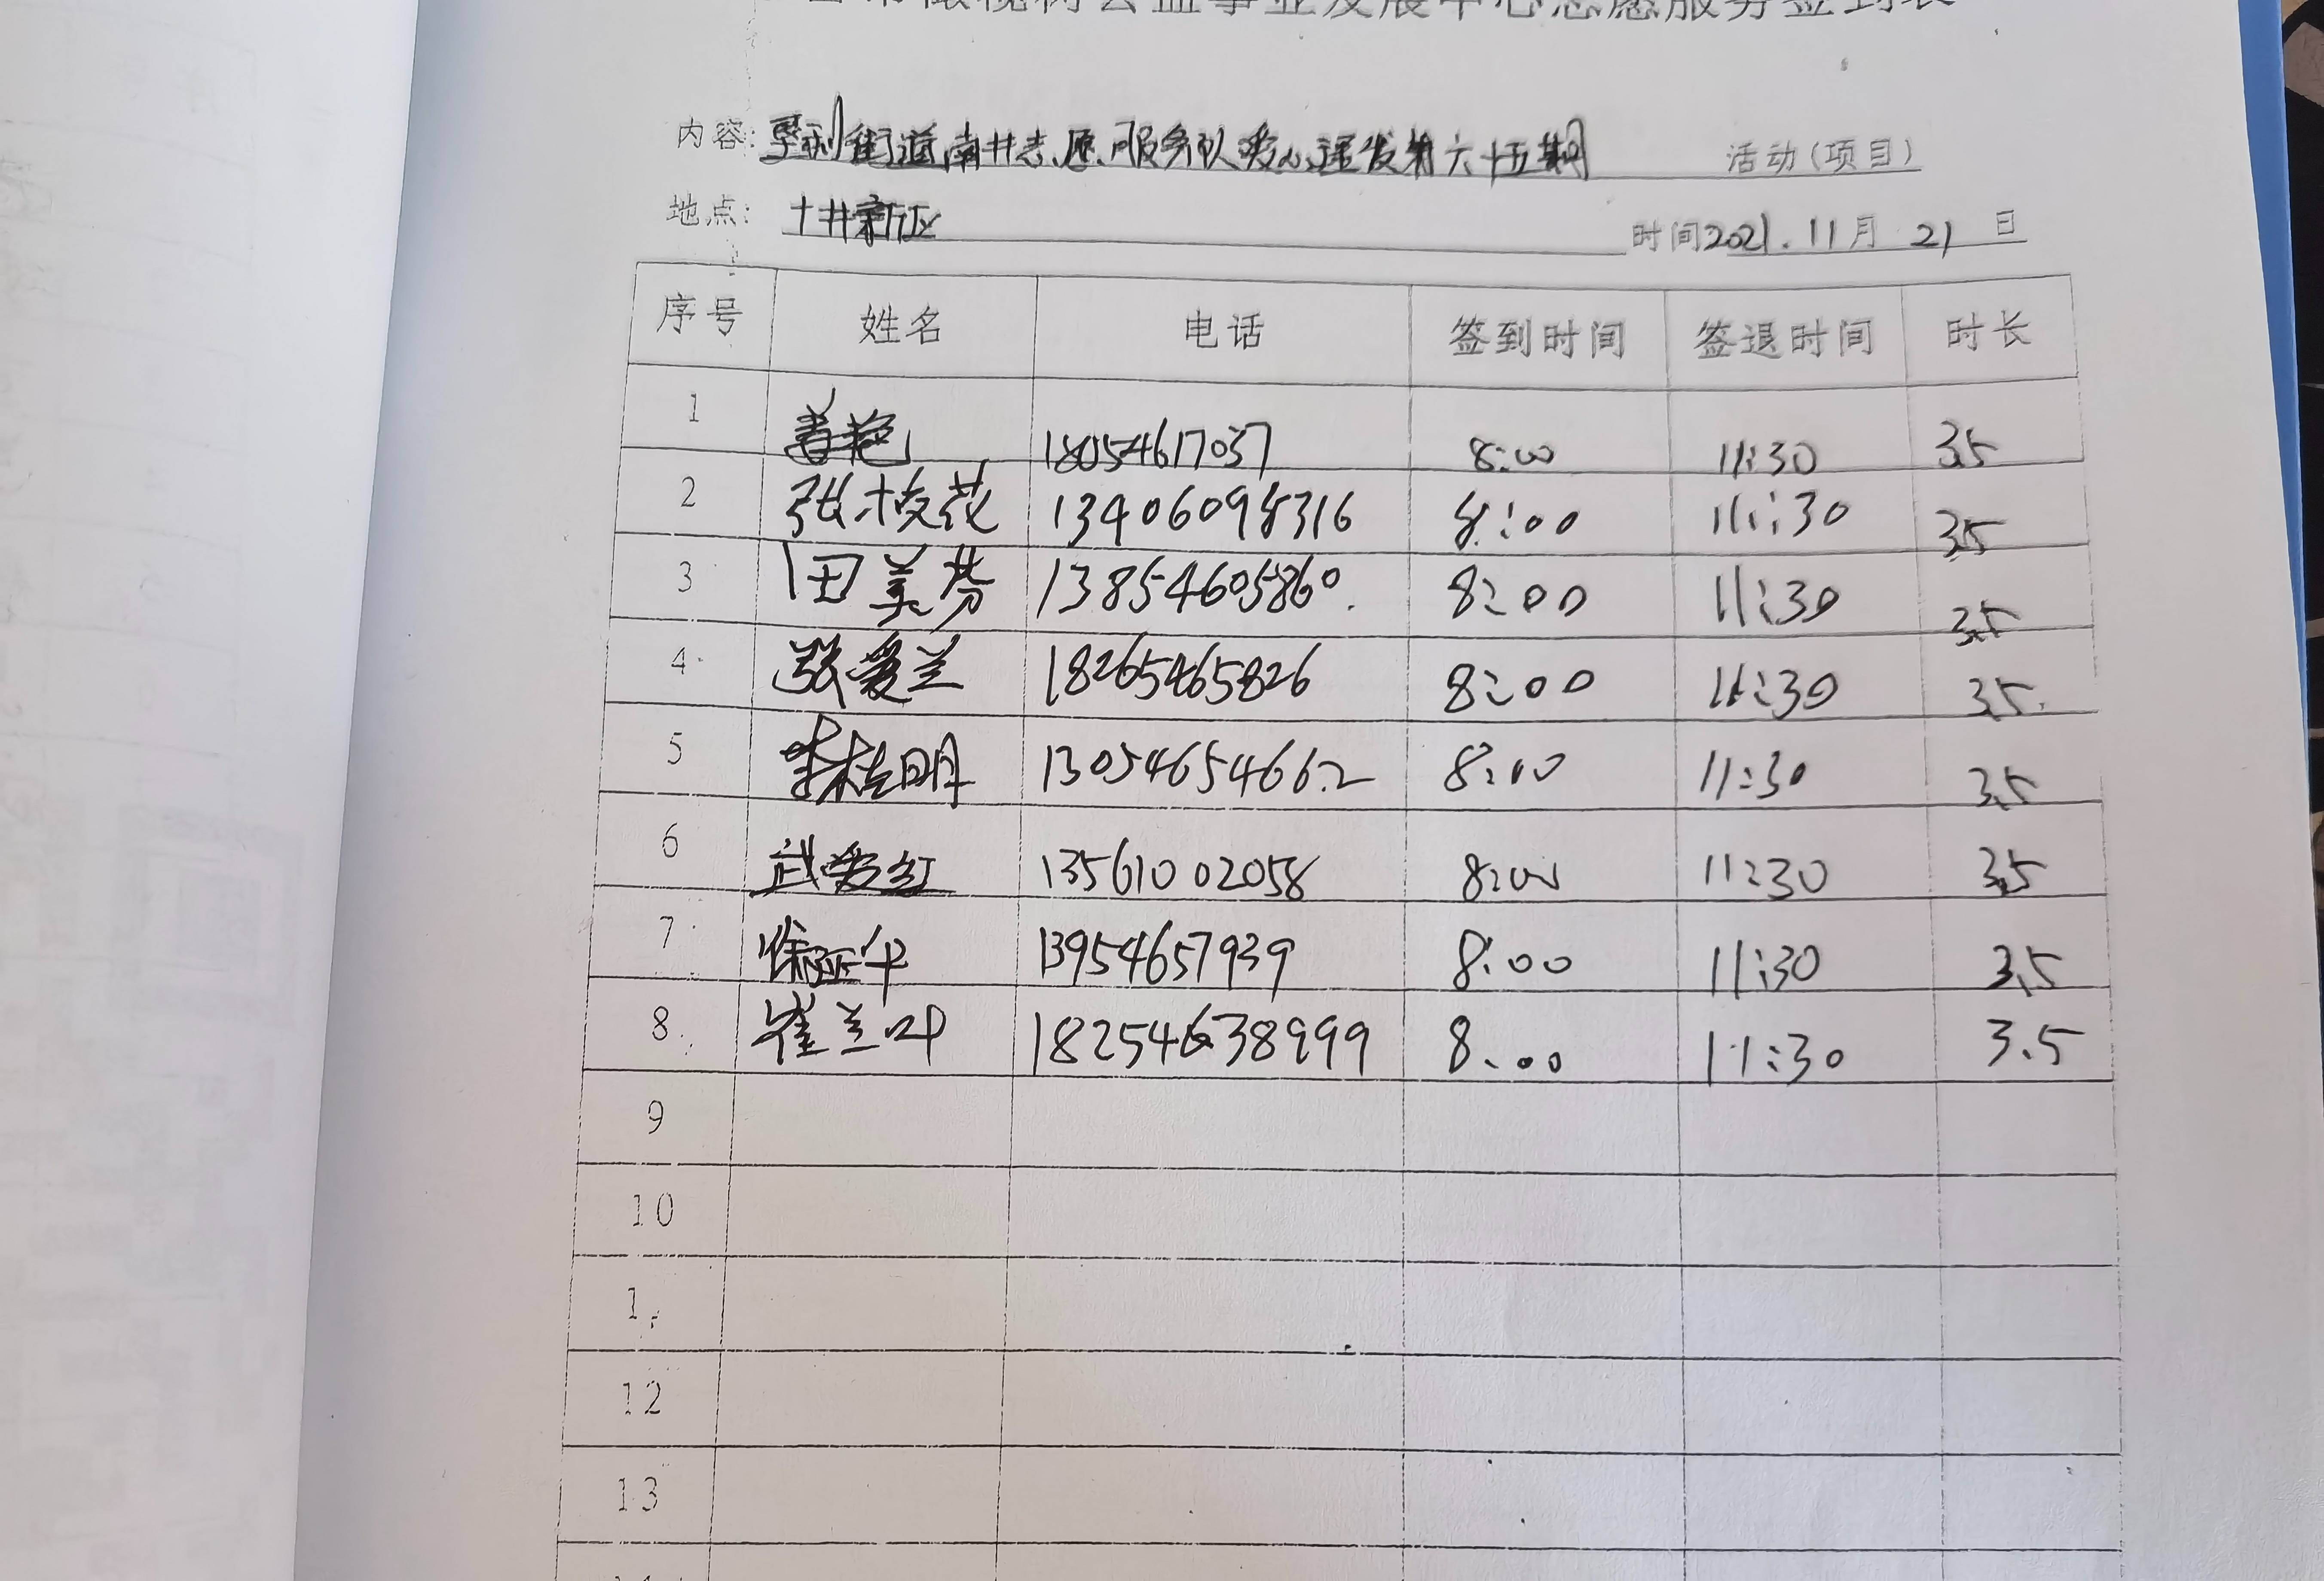 橄榄树公益事业发展中心志愿服务签到表
内容: 垦利街道南井志愿服务队爱心理发第六十五期 活动(项目)
地点: 十井新区 时间2021.11月21日
序号 姓名 电话 签到时间 签退时间 时长
1 盖艳 18054617037 8:00 11:30 3.5
2 张枝花 13406098316 8:00 11:30 3.5
3 田美芬 13854605860. 8:00 11:30 3.5
4 张爱兰 18265465826 8:00 11:30 3.5
5 李桂明 13054654662 8:00 11:30 3.5
6 武爱红 13561002058 8:00 11:30 3.5
7 徐延华 13954657939 8:00 11:30 3.5
8 崔兰叶 18254638999 8:00 11:30 3.5
9
10
1
12
13